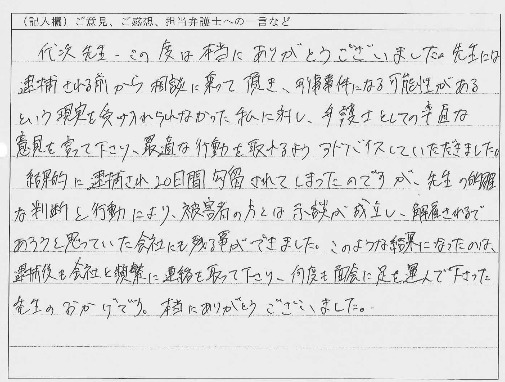 (記入欄)ご意見、ご感想、担当弁護士への一言など
代次先生、この度は本当にありがとうございました。先生には
逮捕される前から相談に乗って頂き、刑事事件になる可能性がある
という現実を受け入れられなかった私に対し、弁護士としての率直な
意見を言って下さり、最適な行動を取れるようアドバイスしていただきました。
結果的に逮捕され20日間勾留されてしまったのですが、先生の的確
な判断と行動により、被害者の方とは示談が成立し、解雇されるで
あろうと思っていた会社にも残る事ができました。このような結果になったのは、
逮捕後も会社と頻繁に連絡を取って下さり、何度も面会に足を運んで下さった
先生のおかげです。本当にありがとうございました。